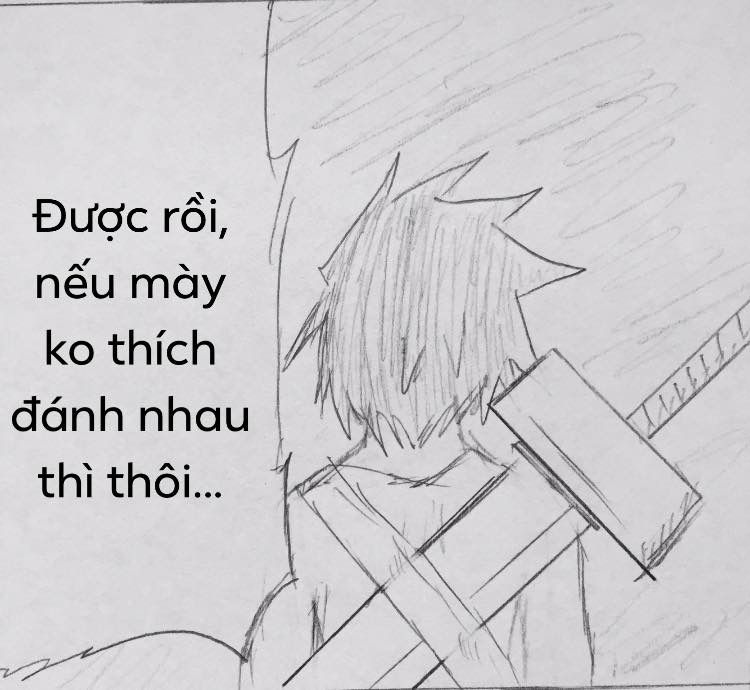 Được rồi,
nếu mày
ko thích
đánh nhau
thì thôi...